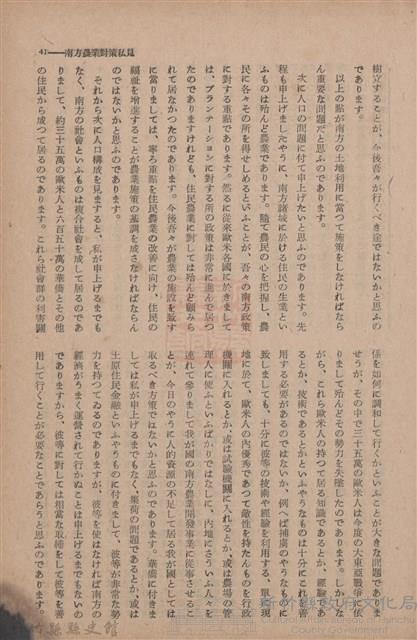 41——南方農業對策私見
樹立することが、今後吾々が行くべき途ではないかと思ふの
であります。
以上の點が南方の土地利用に當つて施策をしなければなら
ん重要な問題だと思ふのであります。
次に人口の問題に付て申上げたいと思ふのであります。先
程も申上げましたやうに、南方諸域に於ける住民の生業とい
ふものは殆んど農業であります。隨て農民の心を把握し、農
民に各々その所を得せしめるといふことが、吾々の南方政策
に對する重點であります。然るに從來歐米各國に於きまして
は、プランテーションに對する所の政策は非常に進んで居つ
たのでありますけれども、住民農業に對しては殆んど顧みら
れて居なかつたのであります。今後吾々が農業の施設を致す
に當りましては、寧ろ重點を住民農業の改善に向け、住民の
福祉を增進することが農業施策の基調を成さなければならん
のではないかと思ふのであります。
それから次に人口構成を見ますると、私が申上げるまでも
なく、南方の社會といふものは複合社會を成して居るのであ
りまして、約三十五萬の歐米人と六百五十萬の華僑とその他
の住民から成つて居るのであります。これら社會群の利害關
係を如何に調和して行くかといふことが大きな問題でありま
せうが、その中で三十五萬の歐米人は今度の大東亞戰爭に依
りまして殆んどその勢力を失墜したのであります。しかしな
がら、これら歐米人の持つて居る知識であるとか、經驗であ
るとか、技術であるとかといふやうなものは十分にこれを利
用する必要があるのではないか、例へば捕虜のやうなものに
致しましても、十分に彼等の技術や經驗を利用する、單に現
地に於て、歐米人の內優秀であつて敵性を持たんものを行政
機關に入れるとか、或は試驗機關に入れるとか、或は農場の管
理人に使ふといふばかりではなしに、內地にさういふ人々を
連れて參りまして我が國の南方農業開發事業に從事させるこ
とが、今日のやうに人的資源の不足して居る我が國としては
取るべき方策ではないかと思ふのであります。華僑に付きま
しては私が申上げるまでもなく、集荷の問題であるとか、或は
土原住民金融といふやうなものに付きまして、彼等が非常な勢
力を持つてゐるのでありますが、彼等を使はなければ南方の
經濟がうまく運營されて行かぬことは申上げるまでもないの
でありますから、彼等に對しては相當な取締をして彼等を善
用して行くことが必要なことであらうと思ふのであります。
新竹縣政府文化局
County Government
縣史館